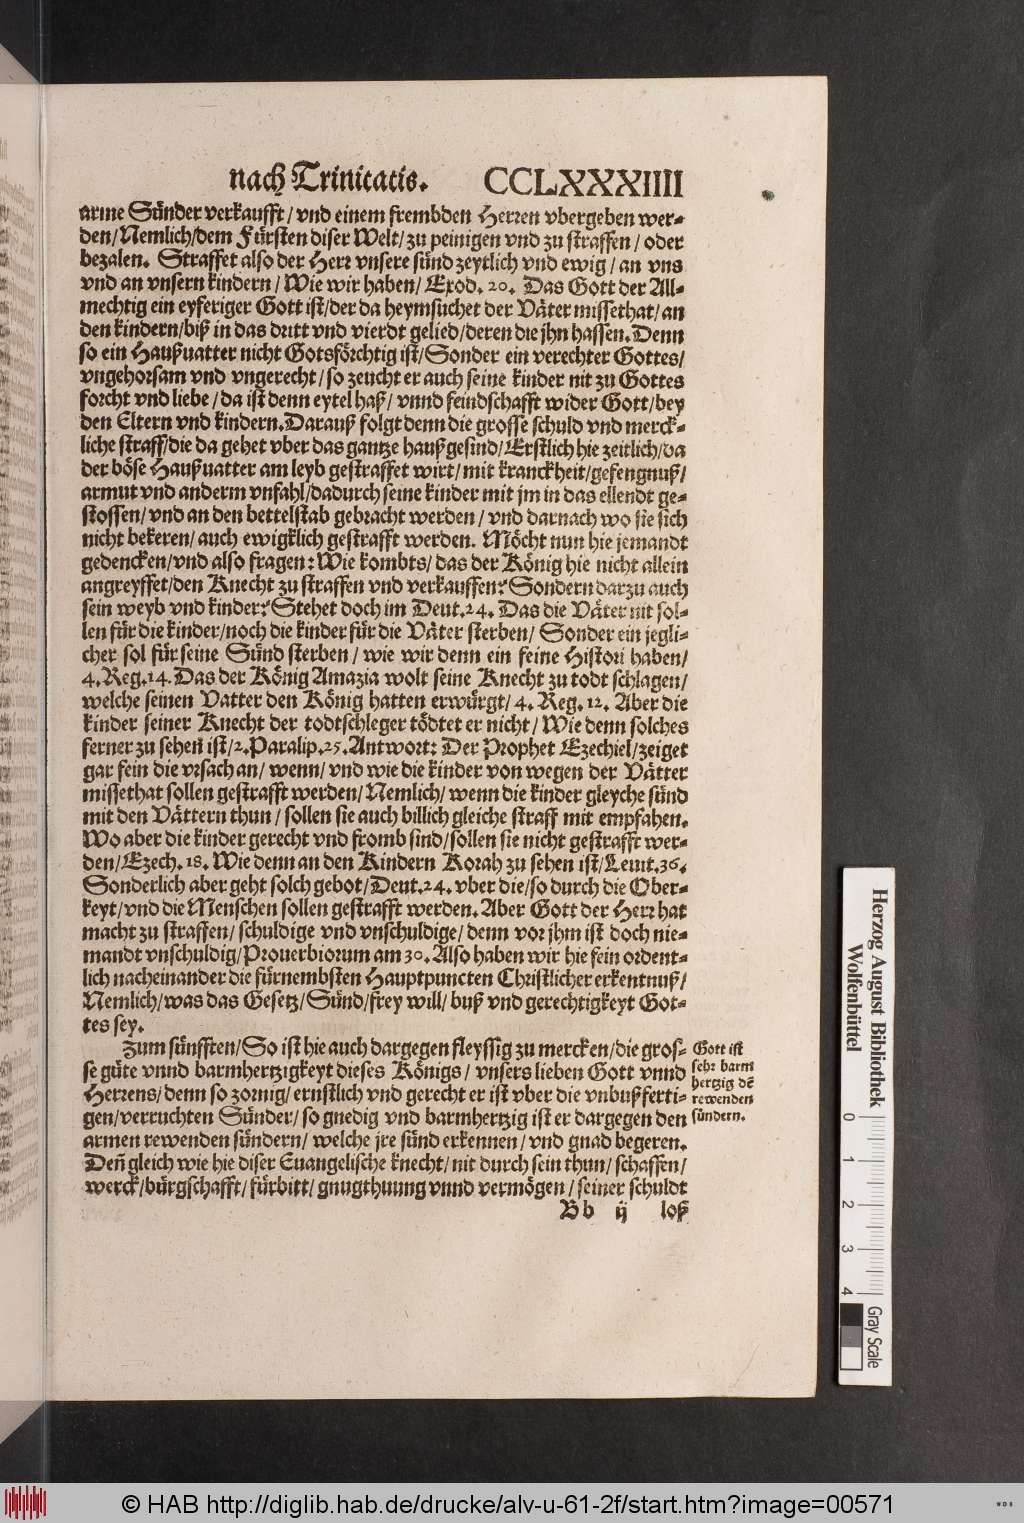 nach Trinitatis. CCLXXXIIII
arme Sünder verkaufft/ vnd einem frembden Herren vbergeben wer-
den/ Nemlich/ dem Fürsten diser Welt/ zu peinigen vnd zu straffen/ oder
bezalen. Straffet also der Herr vnsere sünd zeytlich vnd ewig/ an vns
vnd an vnsern kindern/ Wie wir haben/ Exod. 20. Das Gott der All-
mechtig ein eyferiger Gott ist/ der da heymsuchet der Väter missethat/ an
den kindern/ biß in das dritt vnd vierdt gelied/ deren die jhn hassen. Denn
so ein Haußuatter nicht Gotsförchtig ist/ Sonder ein verechter Gottes/
vngehorsam vnd vngerecht/ so zeucht er auch seine kinder nit zu Gottes
forcht vnd liebe/ da ist denn eytel haß/ vnnd feindschafft wider Gott/ bey
den Eltern vnd kindern. Darauß folgt denn die grosse schuld vnd merck-
liche straff/ die da gehet vber das gantze haußgesind/ Erstlich hie zeitlich/ da
der böse Haußuatter am leyb gestraffet wirt/ mit kranckheit/ gefengnuß/
armut vnd anderm vnfahl/ dadurch seine kinder mit jm in das ellendt ge-
stossen/ vnd an den bettelstab gebracht werden/ vnd darnach wo sie sich
nicht bekeren/ auch ewigklich gestrafft werden. Möcht nun hie jemandt
gedencken/ vnd also fragen: Wie kombts/ das der König hie nicht allein
angreyffet/ den Knecht zu straffen vnd verkauffen? Sondern darzu auch
sein weyb vnd kinder? Stehet doch im Deut. 24. Das die Väter nit sol-
len für die kinder/ noch die kinder für die Väter sterben/ Sonder ein jegli-
cher sol für seine Sünd sterben/ wie wir denn ein feine Histori haben/
4. Reg. 14. Das der König Amazia wolt seine Knecht zu todt schlagen/
welche seinen Vatter den König hatten erwürgt/ 4. Reg. 12. Aber die
kinder seiner Knecht der todtschleger tödtet er nicht/ Wie denn solches
ferner zu sehen ist/ 2. Paralip. 25. Antwort: Der Prophet Ezechiel/ zeiget
gar fein die vrsach an/ wenn/ vnd wie die kinder von wegen der Vätter
missethat sollen gestrafft werden/ Nemlich/ wenn die kinder gleyche sünd
mit den Vättern thun/ sollen sie auch billich gleiche straff mit empfahen.
Wo aber die kinder gerecht vnd fromb sind/ sollen sie nicht gestrafft wer-
den/ Ezech. 18. Wie denn an den Kindern Korah zu sehen ist/ Leuit. 36.
Sonderlich aber geht solch gebot/ Deut. 24. vber die/ so durch die Ober-
keyt/ vnd die Menschen sollen gestrafft werden. Aber Gott der Herr hat
macht zu straffen/ schuldige vnd vnschuldige/ denn vor jhm ist doch nie-
mandt vnschuldig/ Prouerbiorum am 30. Also haben wir hie fein ordent-
lich nacheinander die fürnembsten Hauptpuncten Christlicher erkentnuß/
Nemlich/ was das Gesetz/ Sünd/ frey will/ buß vnd gerechtigkeyt Got-
tes sey.
Zum fünfften/ So ist hie auch dargegen fleyssig zu mercken/ die gros-
se güte vnnd barmhertzigkeyt dieses Königs/ vnsers lieben Gott vnnd
Herrens/ denn so zornig/ ernstlich vnd gerecht er ist vber die vnbußferti-
gen/ verruchten Sünder/ so gnedig vnd barmhertzig ist er dargegen den
armen rewenden sündern/ welche jre sünd erkennen/ vnd gnad begeren.
Deñ gleich wie hie diser Euangelische knecht/ nit durch sein thun/ schaffen/
werck/ bürgschafft/ fürbitt/ gnugthuung vnnd vermögen/ seiner schuldt
Bb ij loß
Gott ist
sehr barm
hertzig dē
rewenden
sündern.
Herzog August Bibliothek
Wolfenbüttel
0 1 2 3 4
Gray Scale
© HAB http://diglib.hab.de/drucke/alv-u-61-2f/start.htm?image=00571